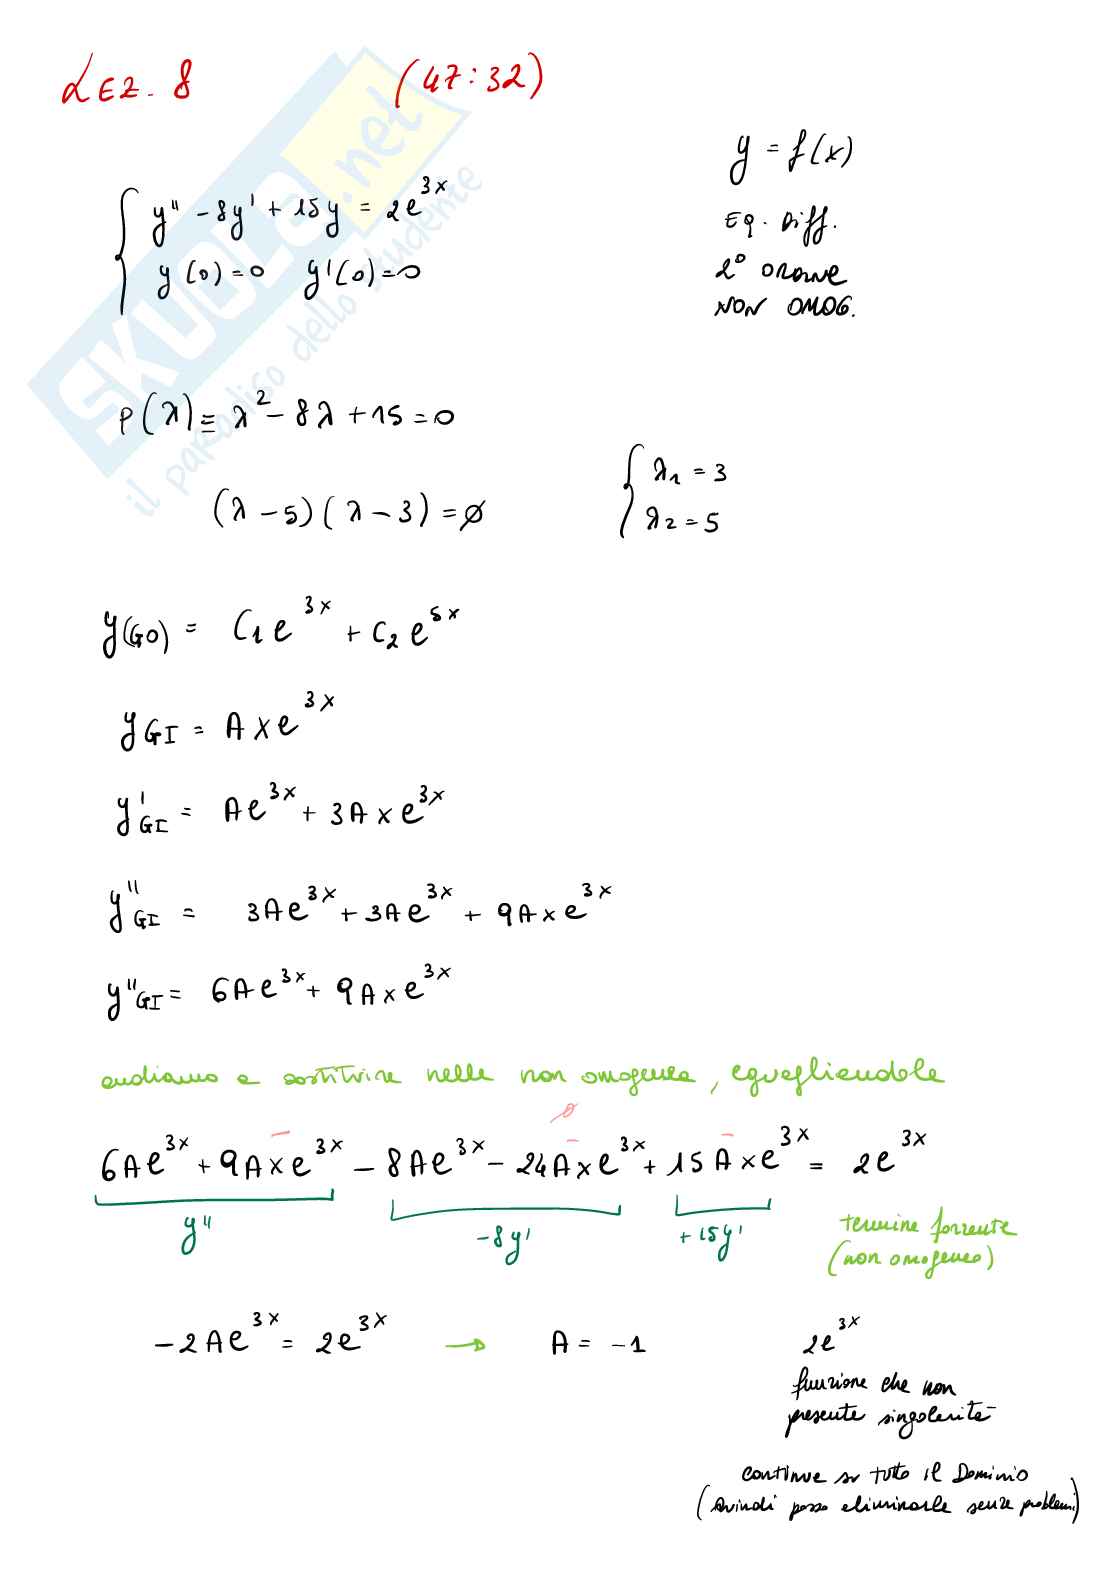 LEZ. 8 (47:32)
y = f(x)
y'' - 8y' + 15y = 2e^{3x}
y(0)=0 y'(0)=0
EQ. Diff.
2° ORDINE
NON OMOG.
P(λ) ≡ λ² - 8λ + 15 = 0
(λ - 5)(λ - 3) = ∅
λ₁ = 3
λ₂ = 5
y(GO) = C₁e^{3x} + C₂e^{5x}
y_{GI} = Axe^{3x}
y'_{GI} = Ae^{3x} + 3Axe^{3x}
y''_{GI} = 3Ae^{3x} + 3Ae^{3x} + 9Axe^{3x}
y''_{GI} = 6Ae^{3x} + 9Axe^{3x}
andiamo a sostituire nella non omogenea, eguagliandola
∅
6Ae^{3x} + 9Axe^{3x} - 8Ae^{3x} - 24Axe^{3x} + 15Axe^{3x} = 2e^{3x}
y'' -8y' +15y'
termine forzante
(non omogeneo)
-2Ae^{3x} = 2e^{3x} → A = -1
2e^{3x}
funzione che non
presenta singolarità
continua su tutto il Dominio
(quindi posso eliminarla senza problemi)
SKUOLA.net
il paradiso dello studente